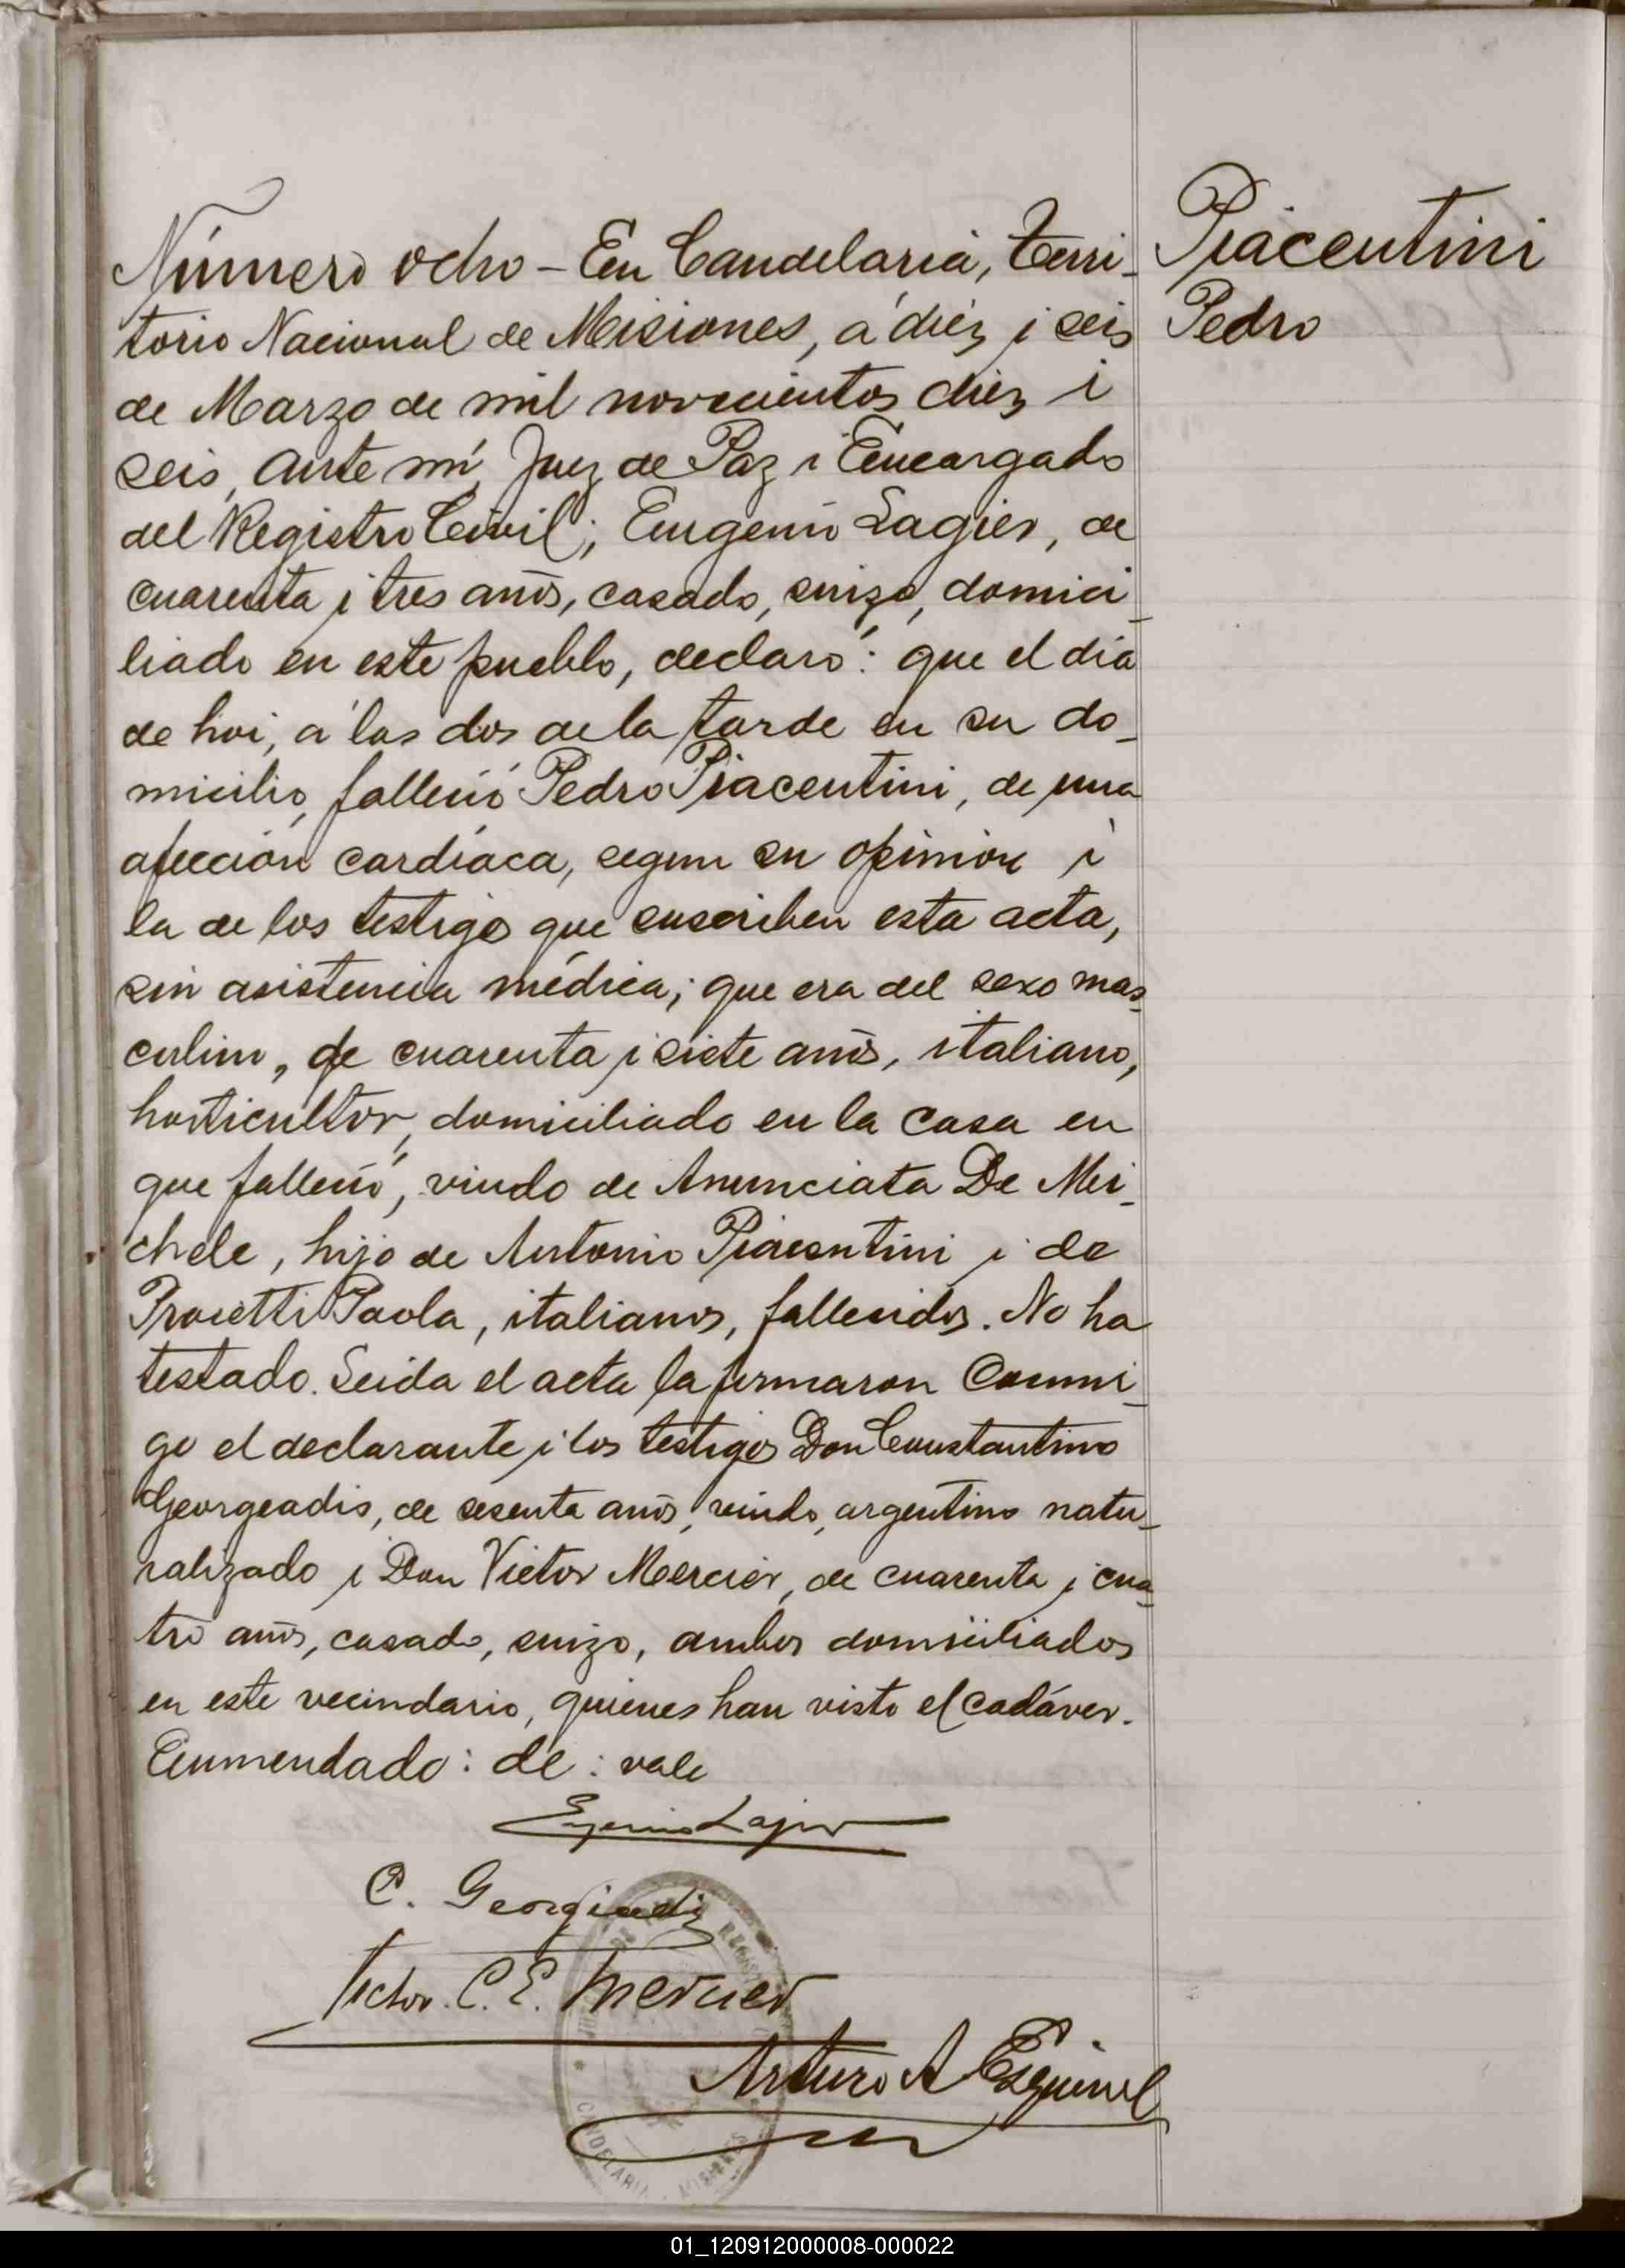 Número ocho - En Candelaria, Terri-
torio Nacional de Misiones, á diéz i seis
de Marzo de mil novecientos diéz i
seis, ante mí, Juez de Paz i Encargado
del Registro Civil; Eugenio Lagier, de
cuarenta i tres años, casado, suizo, domici-
liado en este pueblo, declaró: que el día
de hoi, á las dos de la tarde en su do-
micilio, falleció Pedro Piacentini, de una
afección cardíaca, segun su opinión i
la de los testigos que suscriben esta acta,
sin asistencia médica; que era del sexo mas-
culino, de cuarenta i siete años, italiano,
horticultor, domiciliado en la casa en
que falleció, viudo de Anunciata De Mi-
chele, hijo de Antonio Piacentini i de
Proietti Paola, italianos, fallecidos. No ha
testado. Leida el acta la firmaron conmi-
go el declarante i los testigos Don Constantino
Georgeadis, de sesenta años, viudo, argentino natu-
ralizado i Don Victor Mercier, de cuarenta i cua-
tro años, casado, suizo, ambos domiciliados
en este vecindario, quienes han visto el cadáver.
Enmendado: de: vale
Piacentini
Pedro
Eugenio Lagier
C. Georgiadis
Victor C. E. Mercier
Arturo A Esquivel
CANDELARIA - MISIONES
01_120912000008-000022